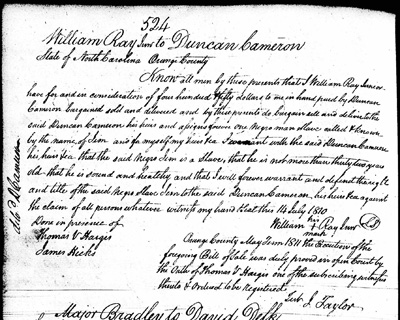 524
William Ray Junr to Duncan Cameron
State of North Carolina Orange County
Know all men by these presents that I William Ray Junr
have for and in consideration of four hundred & fifty dollars to me in hand paid by Duncan
Cameron bargained sold and delivered and by these presents do bargain sell and deliver to the
said Duncan Cameron his heirs and assigns forever one Negro man slave called & known
by the name of Jem and for myself my heirs &ca I warrant with the said Duncan Cameron
his heirs &ca that the said Negro Jem is a Slave, that he is not more than thirty two years
old that he is sound and healthy and that I will forever warrant and defend the
and title of the said negro slave Jem to the said Duncan Cameron, his heirs &ca against
the claim of all persons whatever witness my hand & seal this 14 July 1810
Done in presence of
William his + mark Ray Junr
Thomas V Hargis
James Hicks
Orange County May Term 1811 The Execution of the
foregoing Bill of Sale was duly proven in open Court by
the Oath of Thomas V Hargis one of the subscribing witnesses
thereto & ordered to be Registered
Test J. Taylor
Dld D Cameron
Major Bradley to David Delk